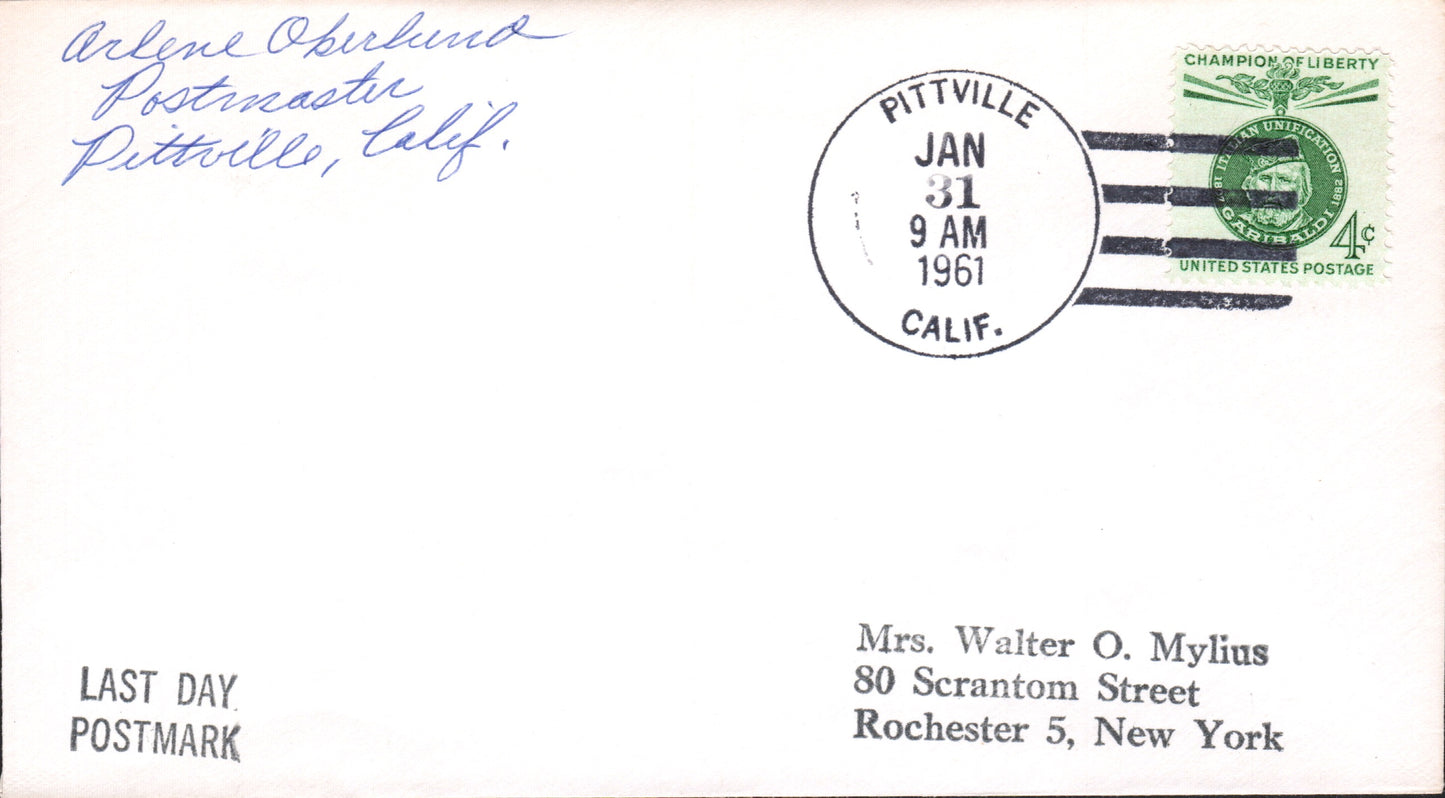 Arlene Oberlund
Postmaster
Pittville, Calif.
PITTVILLE
JAN
31
9 AM
1961
CALIF.
CHAMPION OF LIBERTY
1807 ITALIAN UNIFICATION 1882
GARIBALDI
4¢
UNITED STATES POSTAGE
Mrs. Walter O. Mylius
80 Scrantom Street
Rochester 5, New York
LAST DAY
POSTMARK